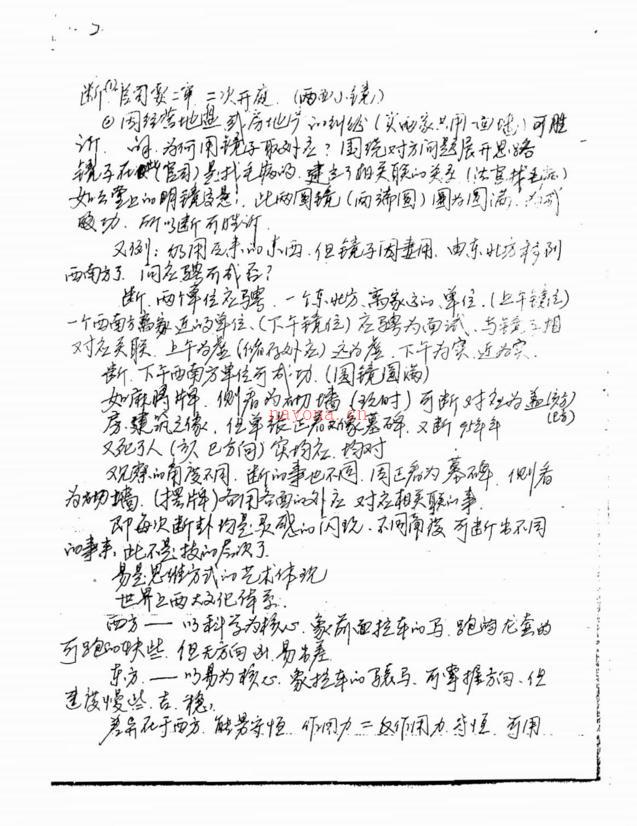 断 官司家二审 二次开庭 (西 小镜)
因经营地 房地产 的纠纷 (实两家共用一面墙) 可胜
诉. 为何用镜子取对应? 围绕对方问题展开思路
镜子在 官司 是找毛病的, 建立了相关联的关系 (法官找毛病)
如公堂上的明镜高悬, 此两圆镜 (两谛圆) 圆为圆满, 为成
功, 所以断可胜诉
又例: 仍用原来的东西, 但镜子因妻用, 由东北方移到
西南方了, 问应聘可成否?
断, 两个单位应聘, 一个东北方, 离家远的单位, (上午镜位)
一个西南方离家近的单位, (下午镜位) 应聘为面试, 与镜 相
对应关联, 上午为虚 远为虚, 下午为实, 近为实.
断, 下午西南方单位可成功, (圆镜圆满)
如麻将牌, 侧看为砌墙 (玩时) 可断对应为盖
房, 建筑之像, 但单张正看又像墓碑, 又断 95年
又死了人 方向 实均应, 均对
观察的角度不同, 断的事也不同, 因正看为墓碑, 侧看
为砌墙, (摆牌) 各用各面的外应 对应相关联的事
即每次断卦均是灵感的闪现, 不同角度可断出不同
的事来, 此不是技的层次了.
易是思维方式的艺术体现
世界上两大文化体系.
西方——以科学为核心, 象前面拉车的马, 跑的龙套的
可跑的快些, 但无方向 易出差
东方——以易为核心, 象拉车的 马, 可掌握方向, 但
速度慢些, 稳,
差异在于西方, 能量守恒, 作用力=反作用力 守恒, 可用
nayona.cn